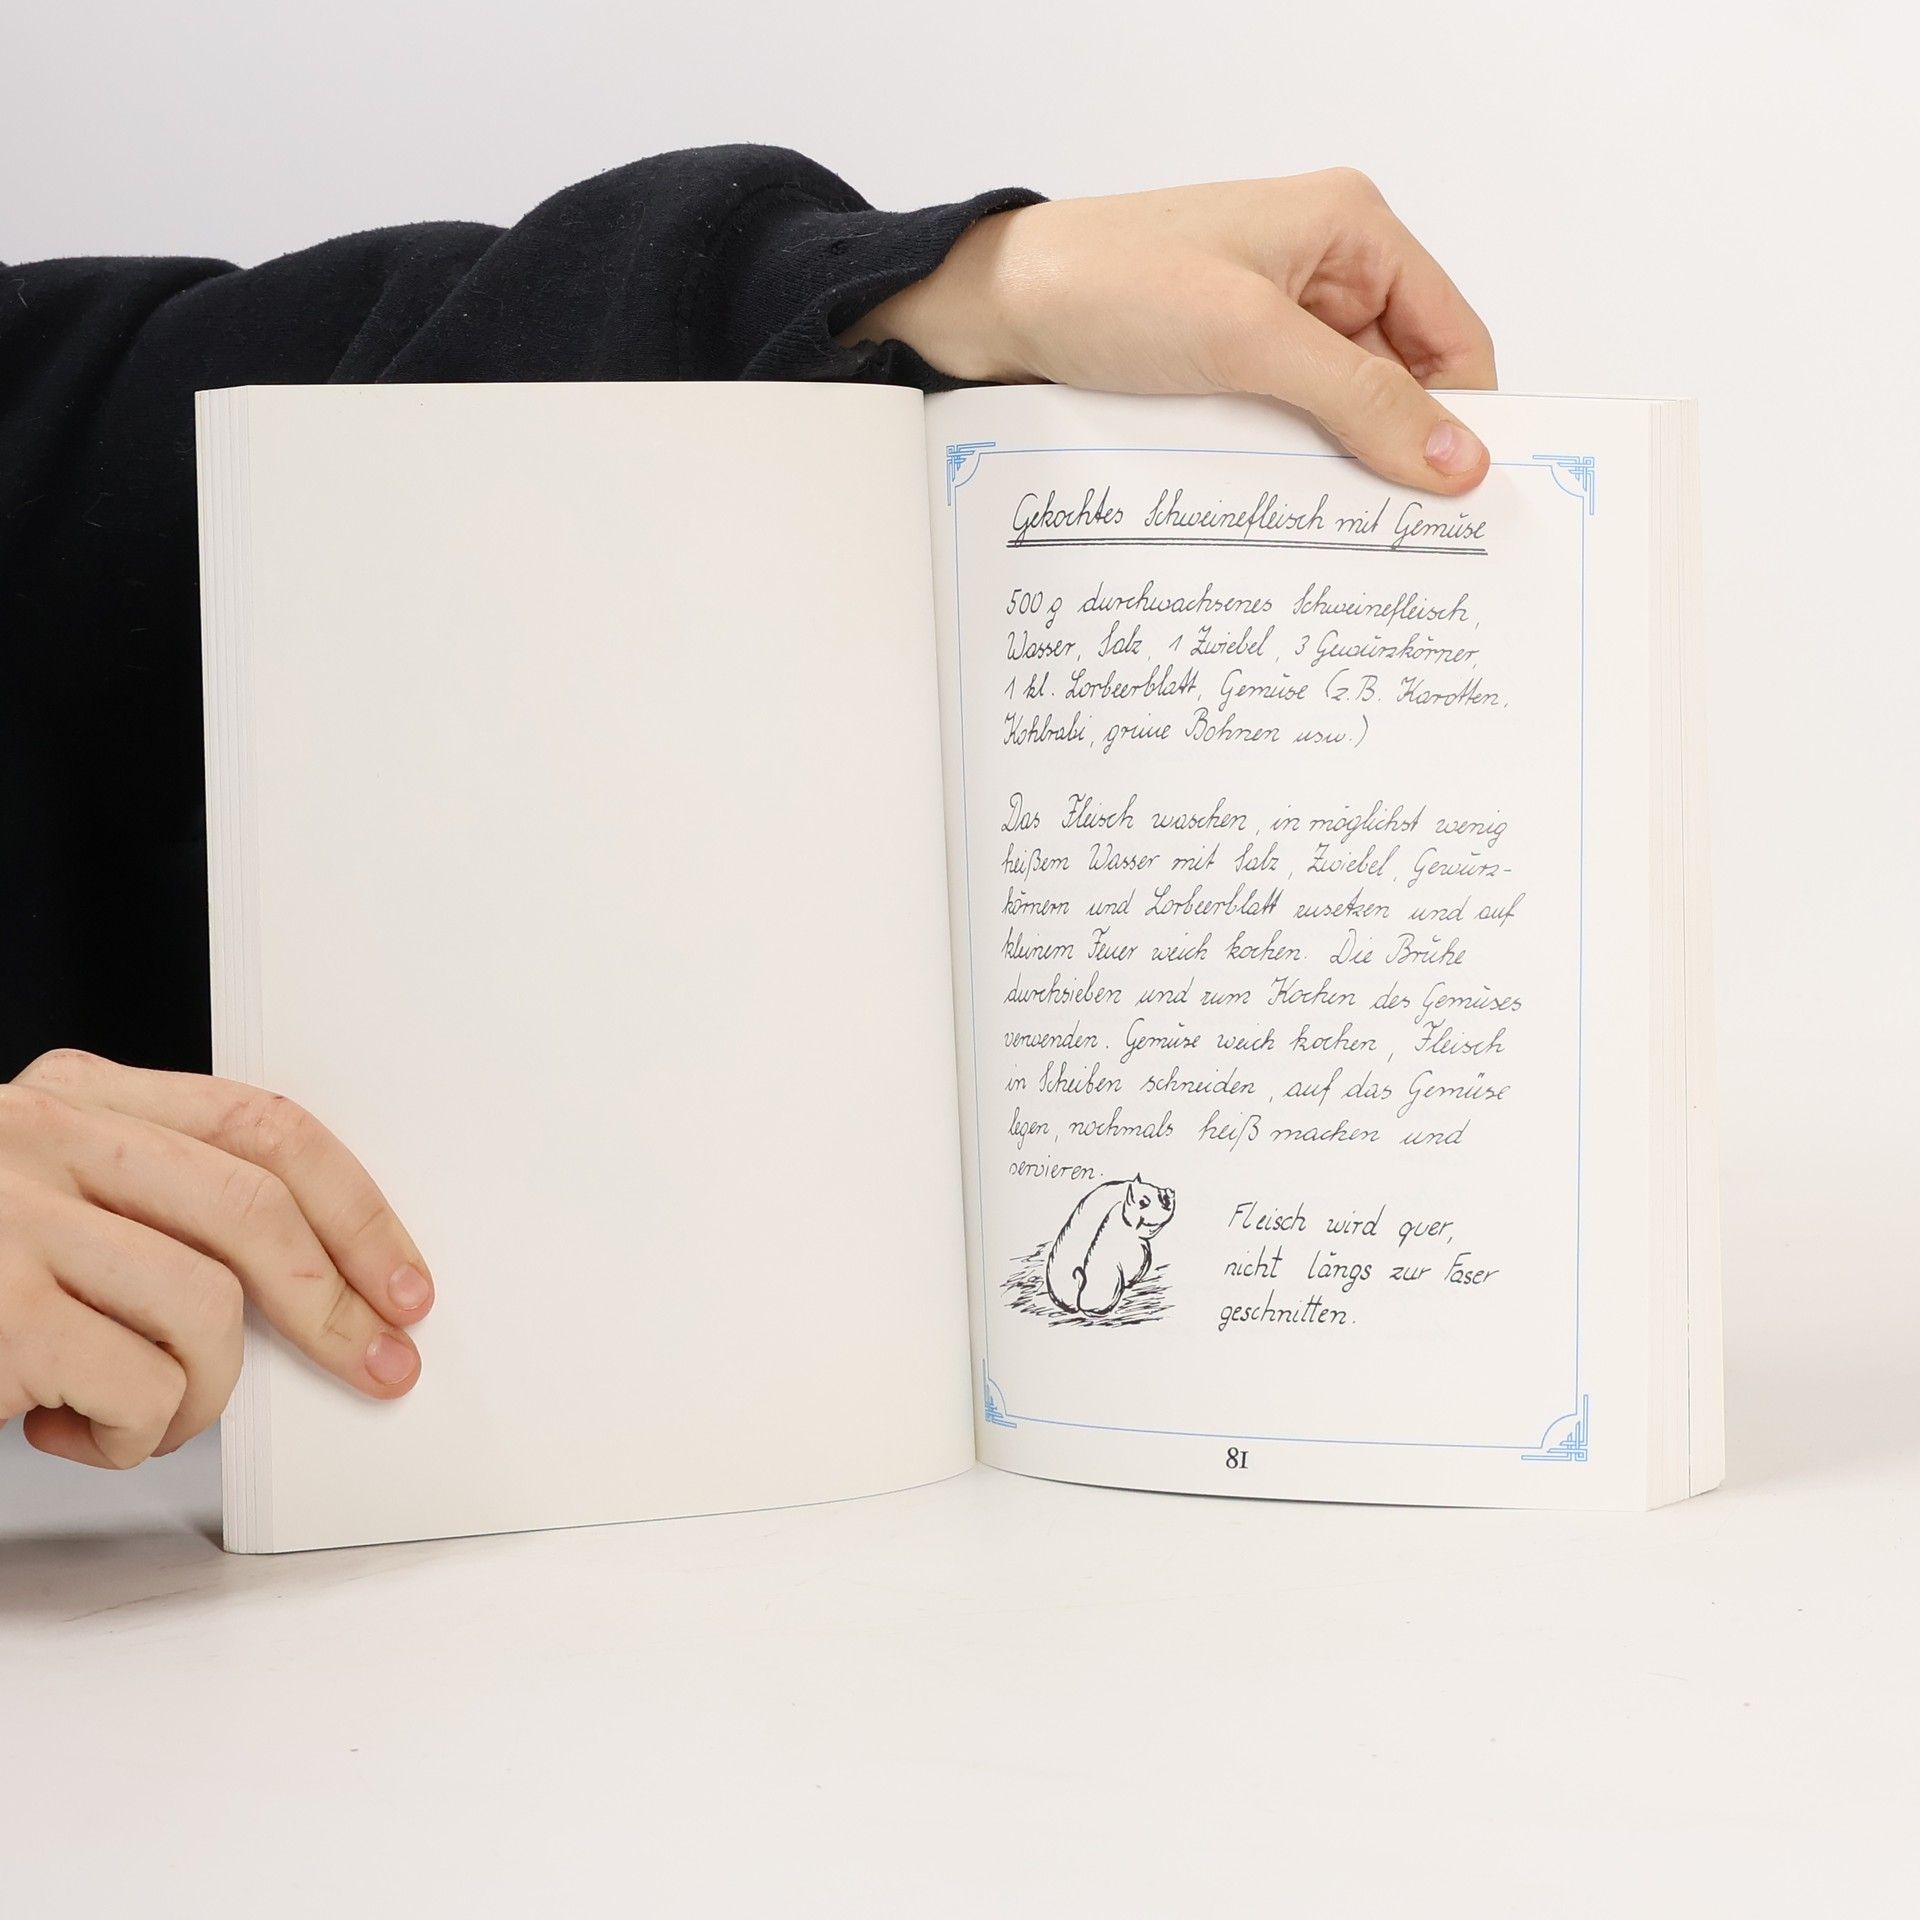 Gekochtes Schweinefleisch mit Gemüse
500 g durchwachsenes Schweinefleisch,
Wasser, Salz, 1 Zwiebel, 3 Gewürzkörner,
1 kl. Lorbeerblatt, Gemüse (z.B. Karotten,
Kohlrabi, grüne Bohnen usw.)
Das Fleisch waschen, in möglichst wenig
heißem Wasser mit Salz, Zwiebel, Gewürz-
körnern und Lorbeerblatt zusetzen und auf
kleinem Feuer weich kochen. Die Brühe
durchsieben und zum Kochen des Gemüses
verwenden. Gemüse weich kochen, Fleisch
in Scheiben schneiden, auf das Gemüse
legen, nochmals heiß machen und
servieren.
Fleisch wird quer,
nicht längs zur Faser
geschnitten.
81